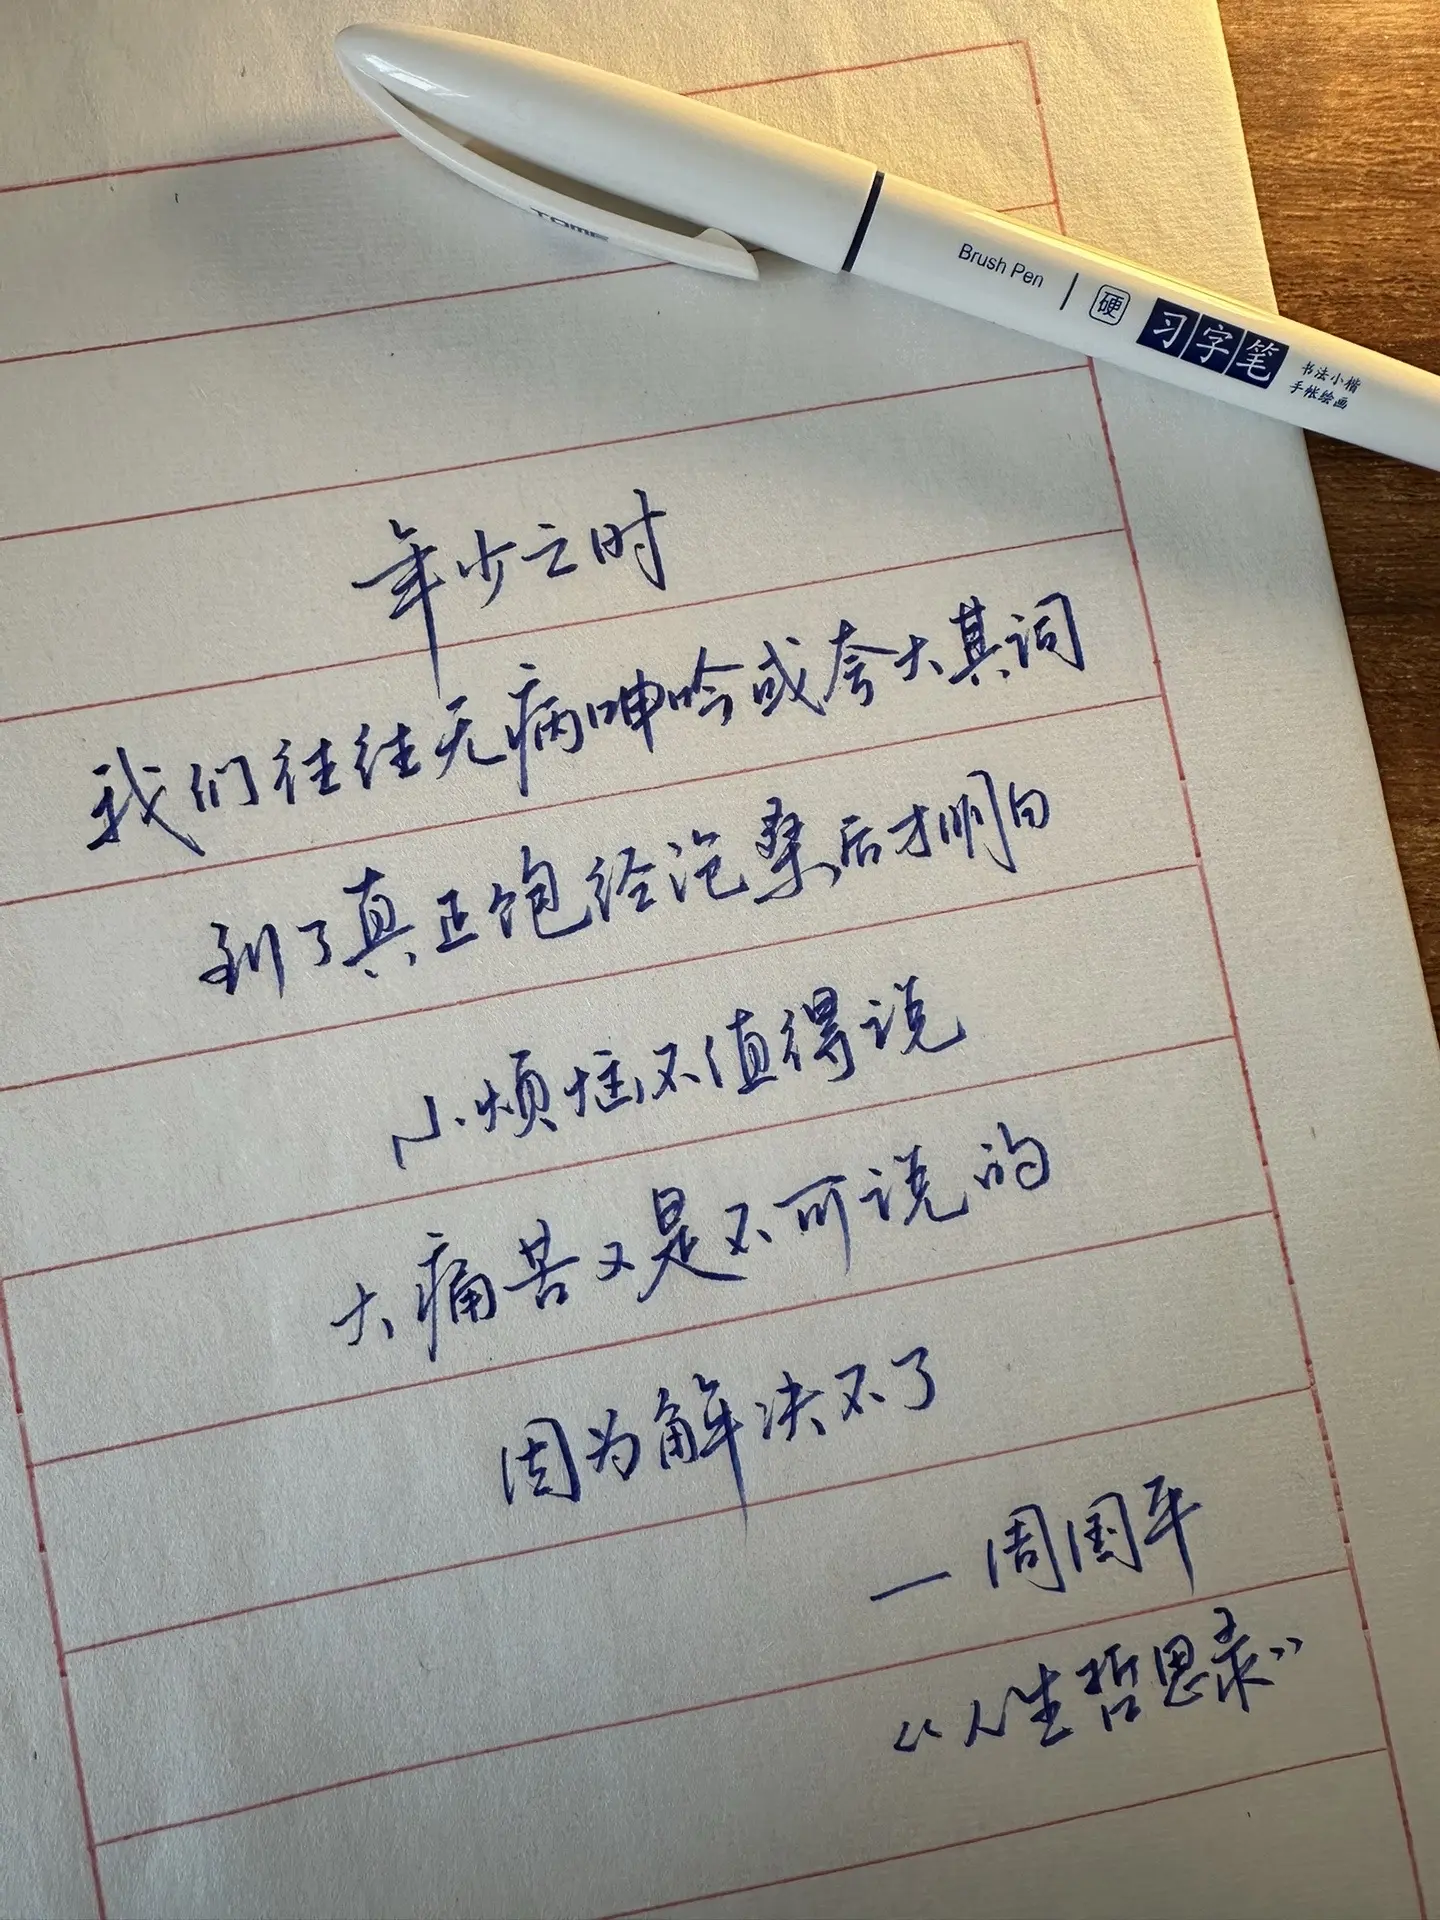 TOMP
Brush Pen | 硬 习字笔
书法小楷
手帐绘画
年少之时
我们往往无病呻吟或夸大其词
到了真正饱经沧桑后才明白
小烦恼不值得说
大痛苦又是不可说的
因为解决不了
—周国平
《人生哲思录》